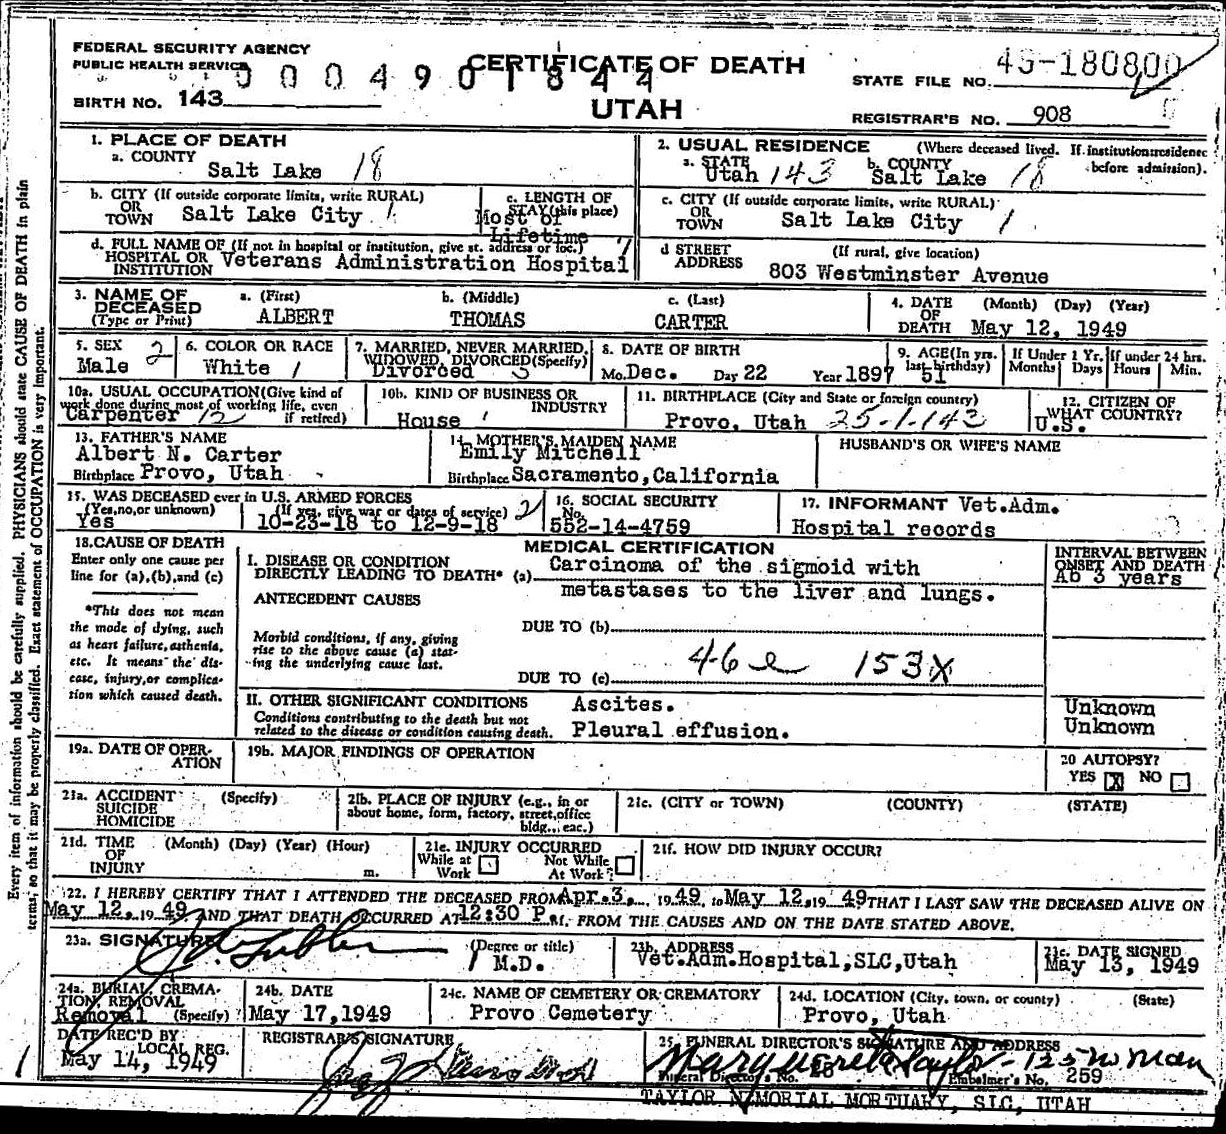 FEDERAL SECURITY AGENCY
PUBLIC HEALTH SERVICE
0004901844
CERTIFICATE OF DEATH
UTAH
BIRTH NO. 143
STATE FILE NO. 49-180800
REGISTRAR'S NO. 908
1. PLACE OF DEATH
a. COUNTY
Salt Lake 18
2. USUAL RESIDENCE (Where deceased lived. If institution: residence before admission).
a. STATE Utah 143 b. COUNTY Salt Lake 18
b. CITY (If outside corporate limits, write RURAL)
OR TOWN Salt Lake City 1
c. LENGTH OF STAY (this place)
Most of Lifetime
c. CITY (If outside corporate limits, write RURAL)
OR TOWN Salt Lake City 1
d. FULL NAME OF (If not in hospital or institution, give st. address or loc.)
HOSPITAL OR INSTITUTION Veterans Administration Hospital
d STREET ADDRESS (If rural, give location)
803 Westminster Avenue
3. NAME OF DECEASED (Type or Print)
a. (First) ALBERT
b. (Middle) THOMAS
c. (Last) CARTER
4. DATE OF DEATH (Month) (Day) (Year)
May 12, 1949
5. SEX
Male 2
6. COLOR OR RACE
White 1
7. MARRIED, NEVER MARRIED, WIDOWED, DIVORCED (Specify)
Divorced
8. DATE OF BIRTH
Mo. Dec. Day 22 Year 1897
9. AGE (In yrs. last birthday)
51
If Under 1 Yr. Months Days
If under 24 hrs. Hours Min.
10a. USUAL OCCUPATION (Give kind of work done during most of working life, even if retired)
Carpenter 12
10b. KIND OF BUSINESS OR INDUSTRY
House
11. BIRTHPLACE (City and State or foreign country)
Provo, Utah 25-1-143
12. CITIZEN OF WHAT COUNTRY?
U.S.
13. FATHER'S NAME
Albert N. Carter
Birthplace Provo, Utah
14. MOTHER'S MAIDEN NAME
Emily Mitchell
Birthplace Sacramento, California
HUSBAND'S OR WIFE'S NAME
15. WAS DECEASED ever in U.S. ARMED FORCES
(Yes, no, or unknown) (If yes, give war or dates of service)
Yes 10-23-18 to 12-9-18 2
16. SOCIAL SECURITY No.
552-14-4759
17. INFORMANT Vet.Adm.
Hospital records
18. CAUSE OF DEATH
Enter only one cause per line for (a), (b), and (c)
*This does not mean the mode of dying, such as heart failure, asthenia, etc. It means the disease, injury, or complication which caused death.
MEDICAL CERTIFICATION
I. DISEASE OR CONDITION DIRECTLY LEADING TO DEATH* (a) Carcinoma of the sigmoid with
metastases to the liver and lungs.
INTERVAL BETWEEN ONSET AND DEATH
Ab 3 years
ANTECEDENT CAUSES
DUE TO (b)
Morbid conditions, if any, giving rise to the above cause (a) stating the underlying cause last.
46e 153X
DUE TO (c)
II. OTHER SIGNIFICANT CONDITIONS
Conditions contributing to the death but not related to the disease or condition causing death.
Ascites. Unknown
Pleural effusion. Unknown
19a. DATE OF OPERATION
19b. MAJOR FINDINGS OF OPERATION
20 AUTOPSY?
YES X NO
21a. ACCIDENT SUICIDE HOMICIDE (Specify)
21b. PLACE OF INJURY (e.g., in or about home, form, factory, street, office bldg., eac.)
21c. (CITY or TOWN) (COUNTY) (STATE)
21d. TIME OF INJURY (Month) (Day) (Year) (Hour) m.
21e. INJURY OCCURRED
While at Work Not While At Work
21f. HOW DID INJURY OCCUR?
22. I HEREBY CERTIFY THAT I ATTENDED THE DECEASED FROM Apr. 3, 1949, to May 12, 1949 THAT I LAST SAW THE DECEASED ALIVE ON
May 12, 1949 AND THAT DEATH OCCURRED AT 12:30 P M. FROM THE CAUSES AND ON THE DATE STATED ABOVE.
23a. SIGNATURE
(Degree or title)
M.D.
23b. ADDRESS
Vet.Adm.Hospital, SLC, Utah
21c. DATE SIGNED
May 13, 1949
24a. BURIAL, CREMATION, REMOVAL (Specify)
Removal
24b. DATE
May 17, 1949
24c. NAME OF CEMETERY OR CREMATORY
Provo Cemetery
24d. LOCATION (City, town, or county) (State)
Provo, Utah
DATE REC'D BY LOCAL REG.
May 14, 1949
REGISTRAR'S SIGNATURE
25. FUNERAL DIRECTOR'S SIGNATURE AND ADDRESS
Marguerete Taylor - 125 No Main
Funeral Director's No. Embalmer's No. 259
TAYLOR MEMORIAL MORTUARY, SLC, UTAH
Every item of information should be carefully supplied. PHYSICIANS should state CAUSE OF DEATH in plain
terms, so that it may be properly classified. Exact statement of OCCUPATION is very important.